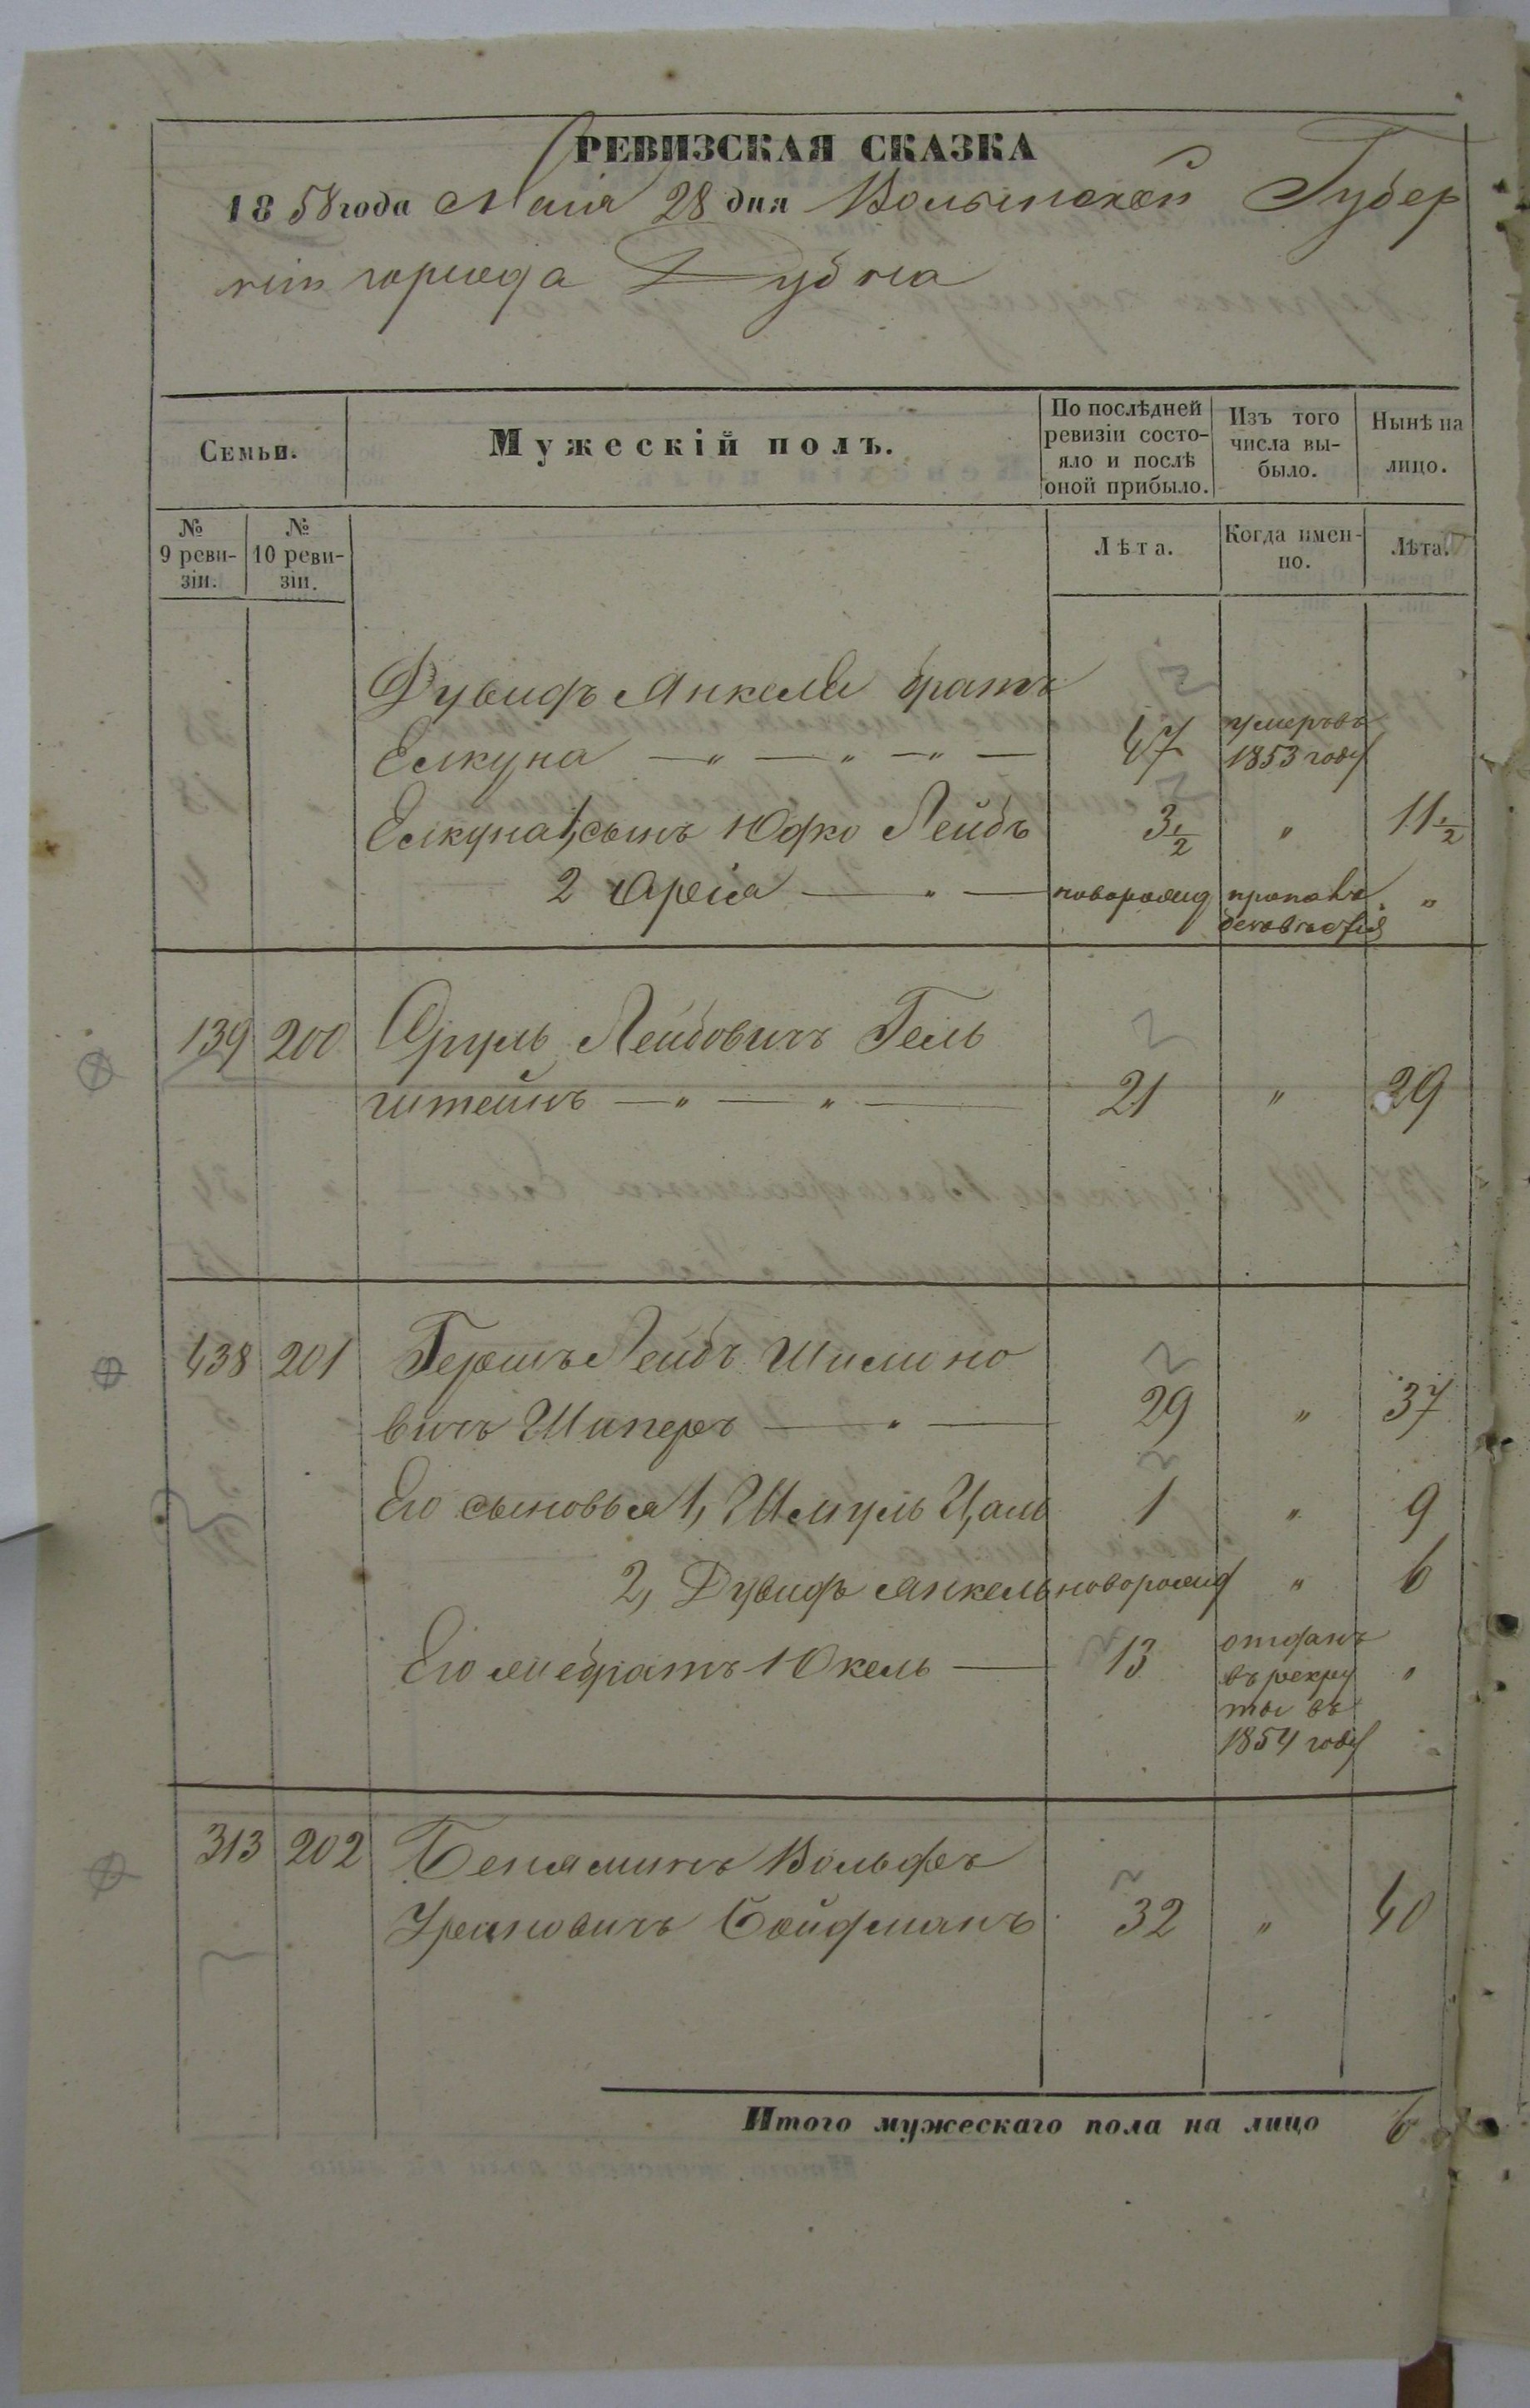 РЕВИЗСКАЯ СКАЗКА
1858 года Маія 28 дня Волынской Губер
ніи города Дубна
Семьи.
Мужескій полъ.
По послѣдней ревизіи состо-
яло и послѣ
оной прибыло.
Изъ того
числа вы-
было.
Нынѣ на
лицо.
№
9 реви-
зіи.
№
10 реви-
зіи.
Лѣта.
Когда имен-
но.
Лѣта.
Дувидъ Янкеля братъ
Елкуна — " — " — " — 47 умеръ въ
1853 году
Елкуна 1, сынъ Юдко Лейбъ 3 1/2 " 11 1/2
2 — " — новорожд пропалъ "
139 200 Сруль Лейбовичъ Гель
штейнъ — " — " — 21 " 29
438 201 Гершъ Лейбъ Шимоно
вичъ Шиперъ — " — 29 " 37
Его сыновья 1, Шмуль Цаль 1 " 9
2, Дувидъ Янкель новорожд " 6
Его же братъ Юкель — 13 отданъ
въ рекру
ты въ
1854 году "
313 202 Бенямин Вольфъ
Сойфманъ 32 " 40
Итого мужескаго пола на лицо 6